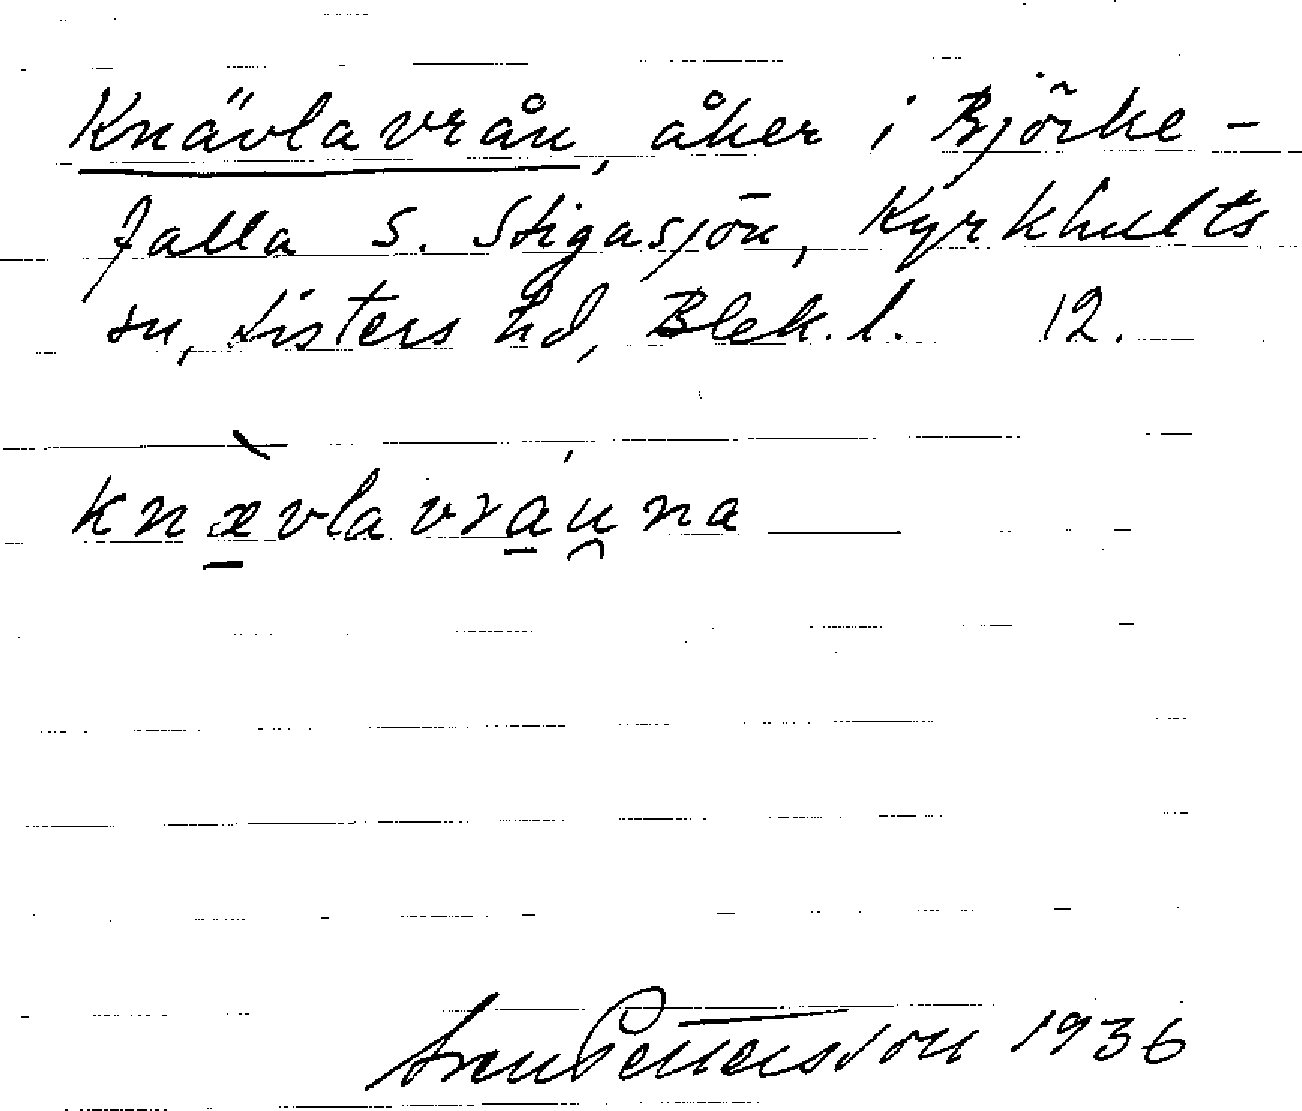 Knävlavrån, åker i Björke-
falla S. Stigasjön, Kyrkhults
sn, Listers hd, Blek. l. 12.
knævlavráu̯na
Sven Pettersson 1936